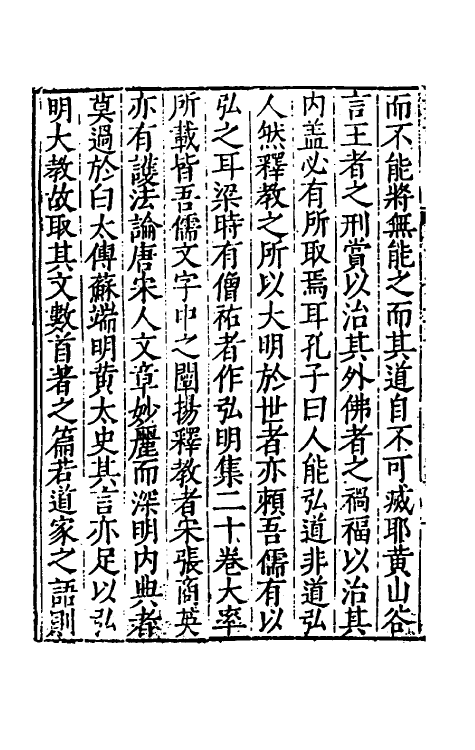 而不能將無能之而其道自不可㓕耶黄山谷
言王者之刑賞以治其外佛者之禍福以治其
内盖必有所取焉耳孔子曰人能弘道非道弘
人然釋教之所以大明於世者亦頼吾儒有以
弘之耳梁時有僧祐者作弘明集二十卷大率
所載皆吾儒文字中之闡揚釋教者宋張商英
亦有護法論唐宋人文章妙麗而深明内典者
莫過於白太傅蘇端明黄太史其言亦足以弘
明大教故取其文數首著之篇若道家之語則